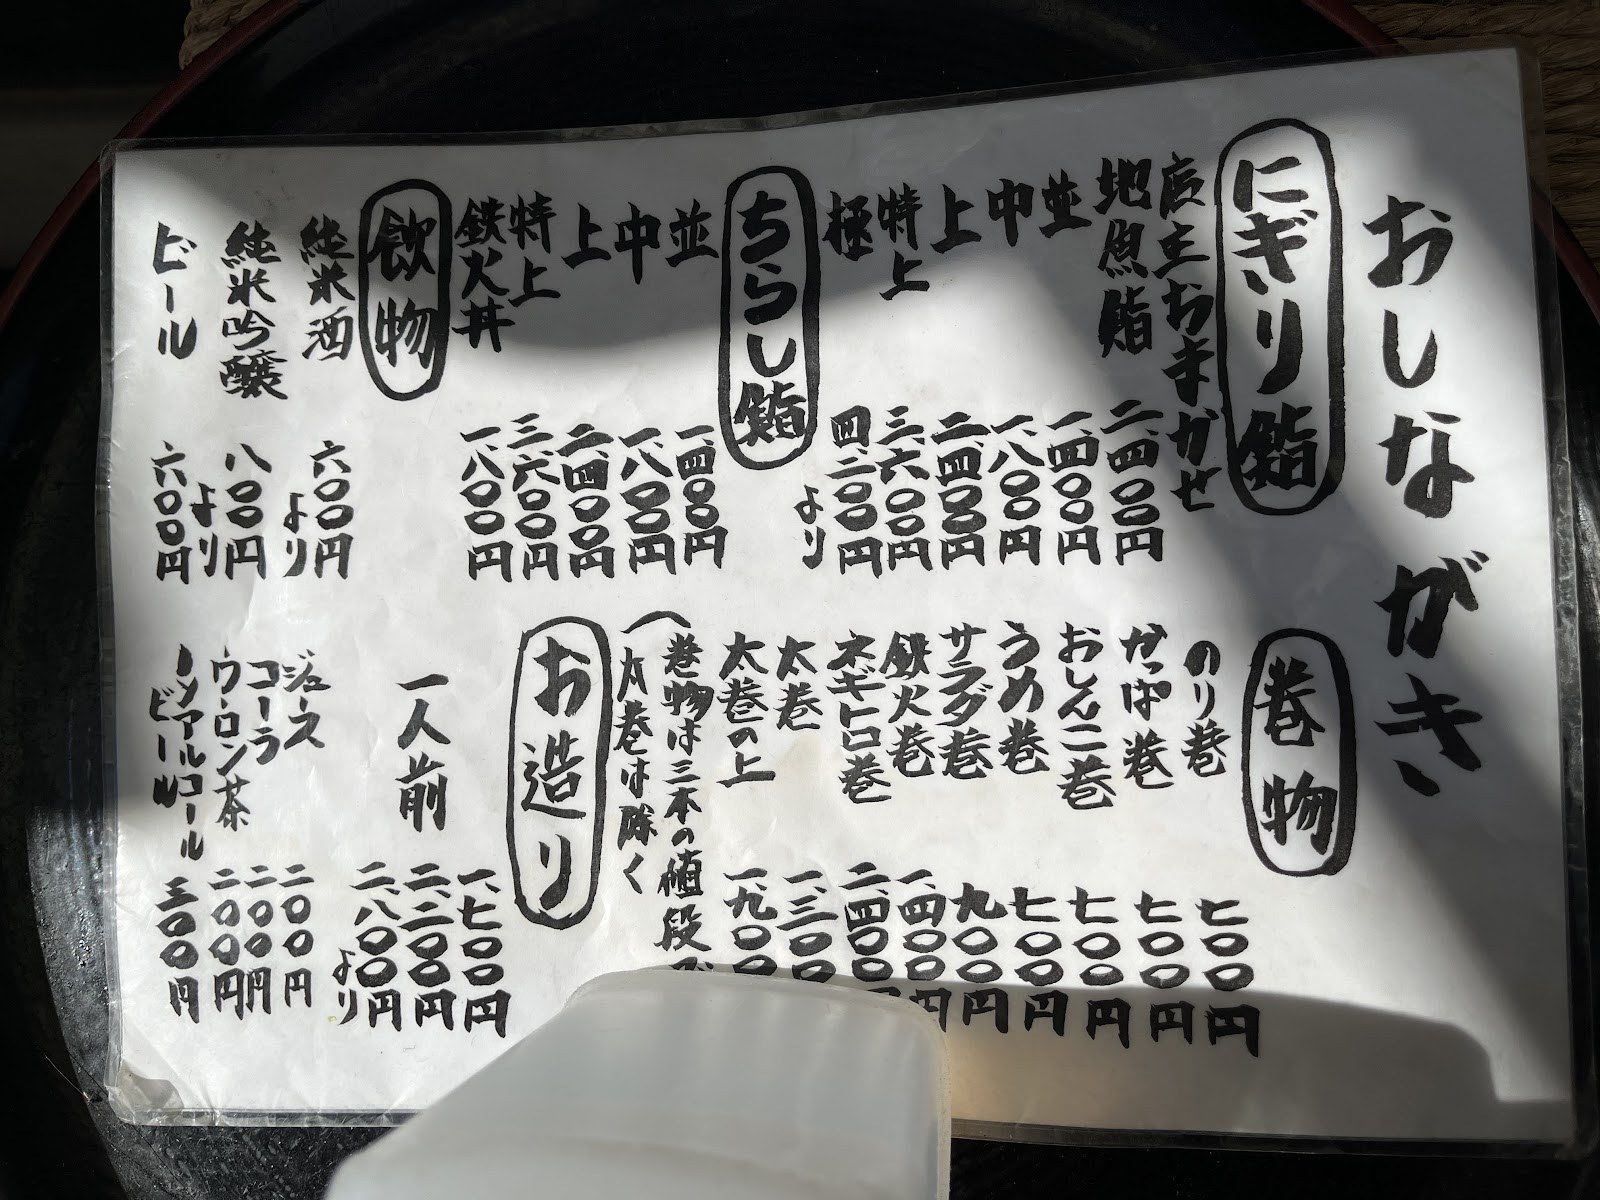 おしながき
にぎり鮨
店主おまかせ
地魚鮨 二、四〇〇円
並 一、四〇〇円
中 一、八〇〇円
上 二、四〇〇円
特上 三、六〇〇円
極 四、二〇〇円
より
ちらし鮨
並 一、四〇〇円
中 一、八〇〇円
上 二、四〇〇円
特上 三、六〇〇円
鉄火丼 一、八〇〇円
飲物
純米酒 六〇〇円
より
純米吟醸 八〇〇円
より
ビール 六〇〇円
巻物
のり巻 七〇〇円
かっぱ巻 七〇〇円
おしんこ巻 七〇〇円
うめ巻 七〇〇円
サラダ巻 九〇〇円
鉄火巻 一、四〇〇円
ネギトロ巻 二、四〇〇
太巻 一、三〇〇
太巻の上 一、九〇〇
(巻物は三本の値段
太巻は除く
お造り
一、七〇〇円
一人前 二、二〇〇円
二、八〇〇円
より
ジュース 二〇〇円
コーラ 二〇〇円
ウーロン茶 二〇〇円
ノンアルコール
ビール 三〇〇円